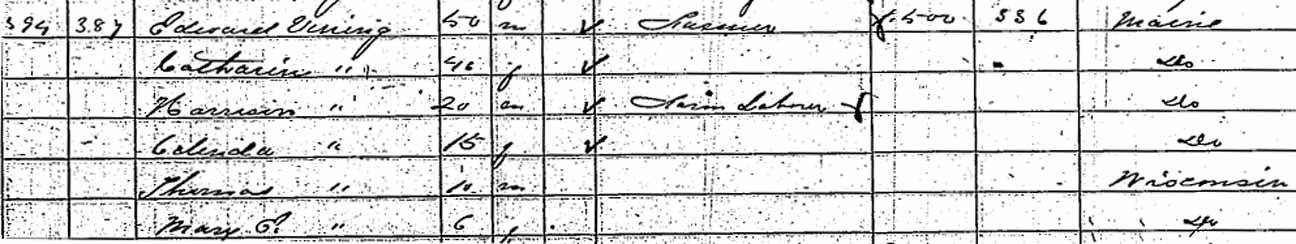 394 387 Edward Vining 50 m ✓ Farmer 1.500 336 Maine
Catharin " 46 f ✓ Do
Harrison " 20 m ✓ Farm Laborer Do
Celinda " 15 f ✓ Do
Thomas " 10 m Wisconsin
Mary E. " 6 f Do